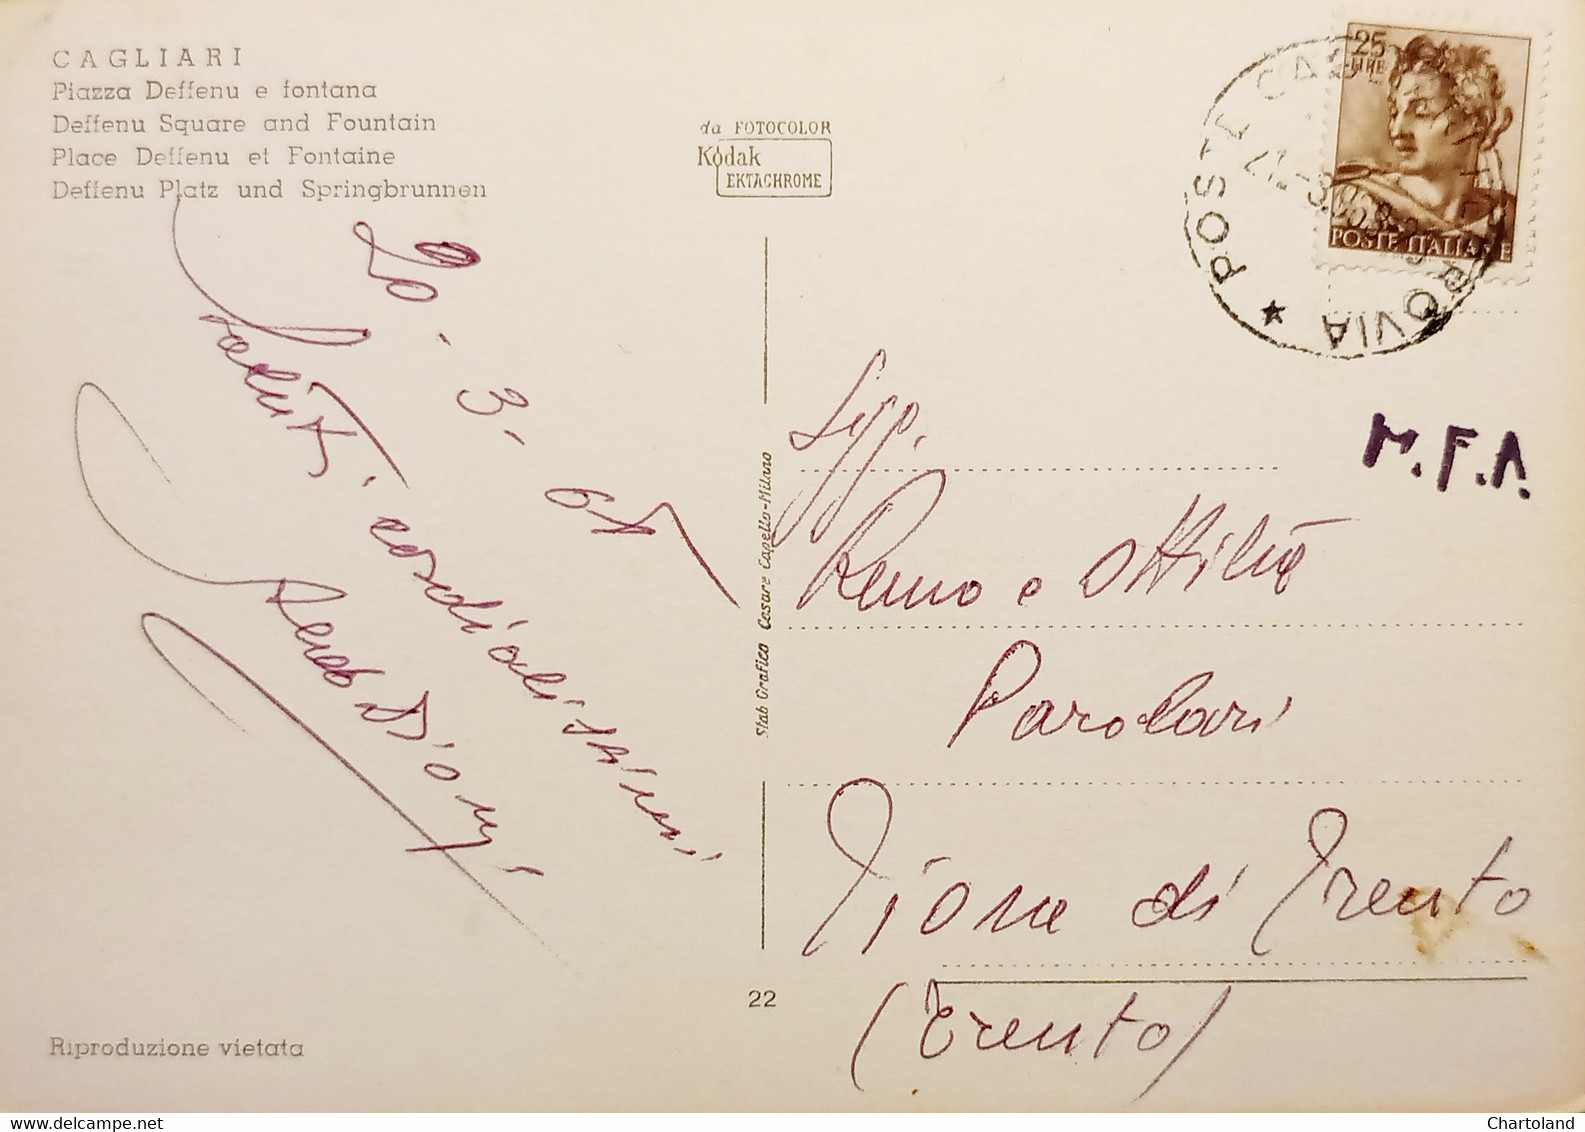 CAGLIARI
Piazza Deffenu e fontana
Deffenu Square and Fountain
Place Deffenu et Fontaine
Deffenu Platz und Springbrunnen
da FOTOCOLOR
Kodak
EKTACHROME
25
LIRE
POSTE ITALIANE
POSTE CA
ROVIA ★
21.-3.
M.F.A.
20-3-68
Saluti cordialissimi
Sigg.
Remo e Ottilia
Parolari
Tione di Trento
(Trento)
Stab Grafico Cesare Capello-Milano
22
Riproduzione vietata
Chartoland
www.delcampe.net